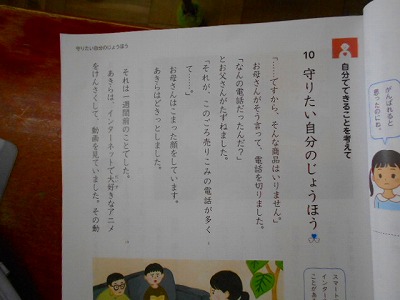 守りたい自分のじょうほう
自分でできることを考えて
10 守りたい自分のじょうほう
「……ですから、そんな商品はいりません。」
お母さんがそう言って、電話を切りました。
「なんの電話だったんだろ？」
とお父さんがたずねました。
「それが、このごろ売りこみの電話が多く
て……。」
お母さんはこまった顔をしています。
あきらはどきっとしました。
それは一週間前のことでした。
あきらは、インターネットで大好きなアニメ
をけんさくして、動画を見ていました。その動
がんばれると
思ったのにな。
スマート
インター
ことがあ